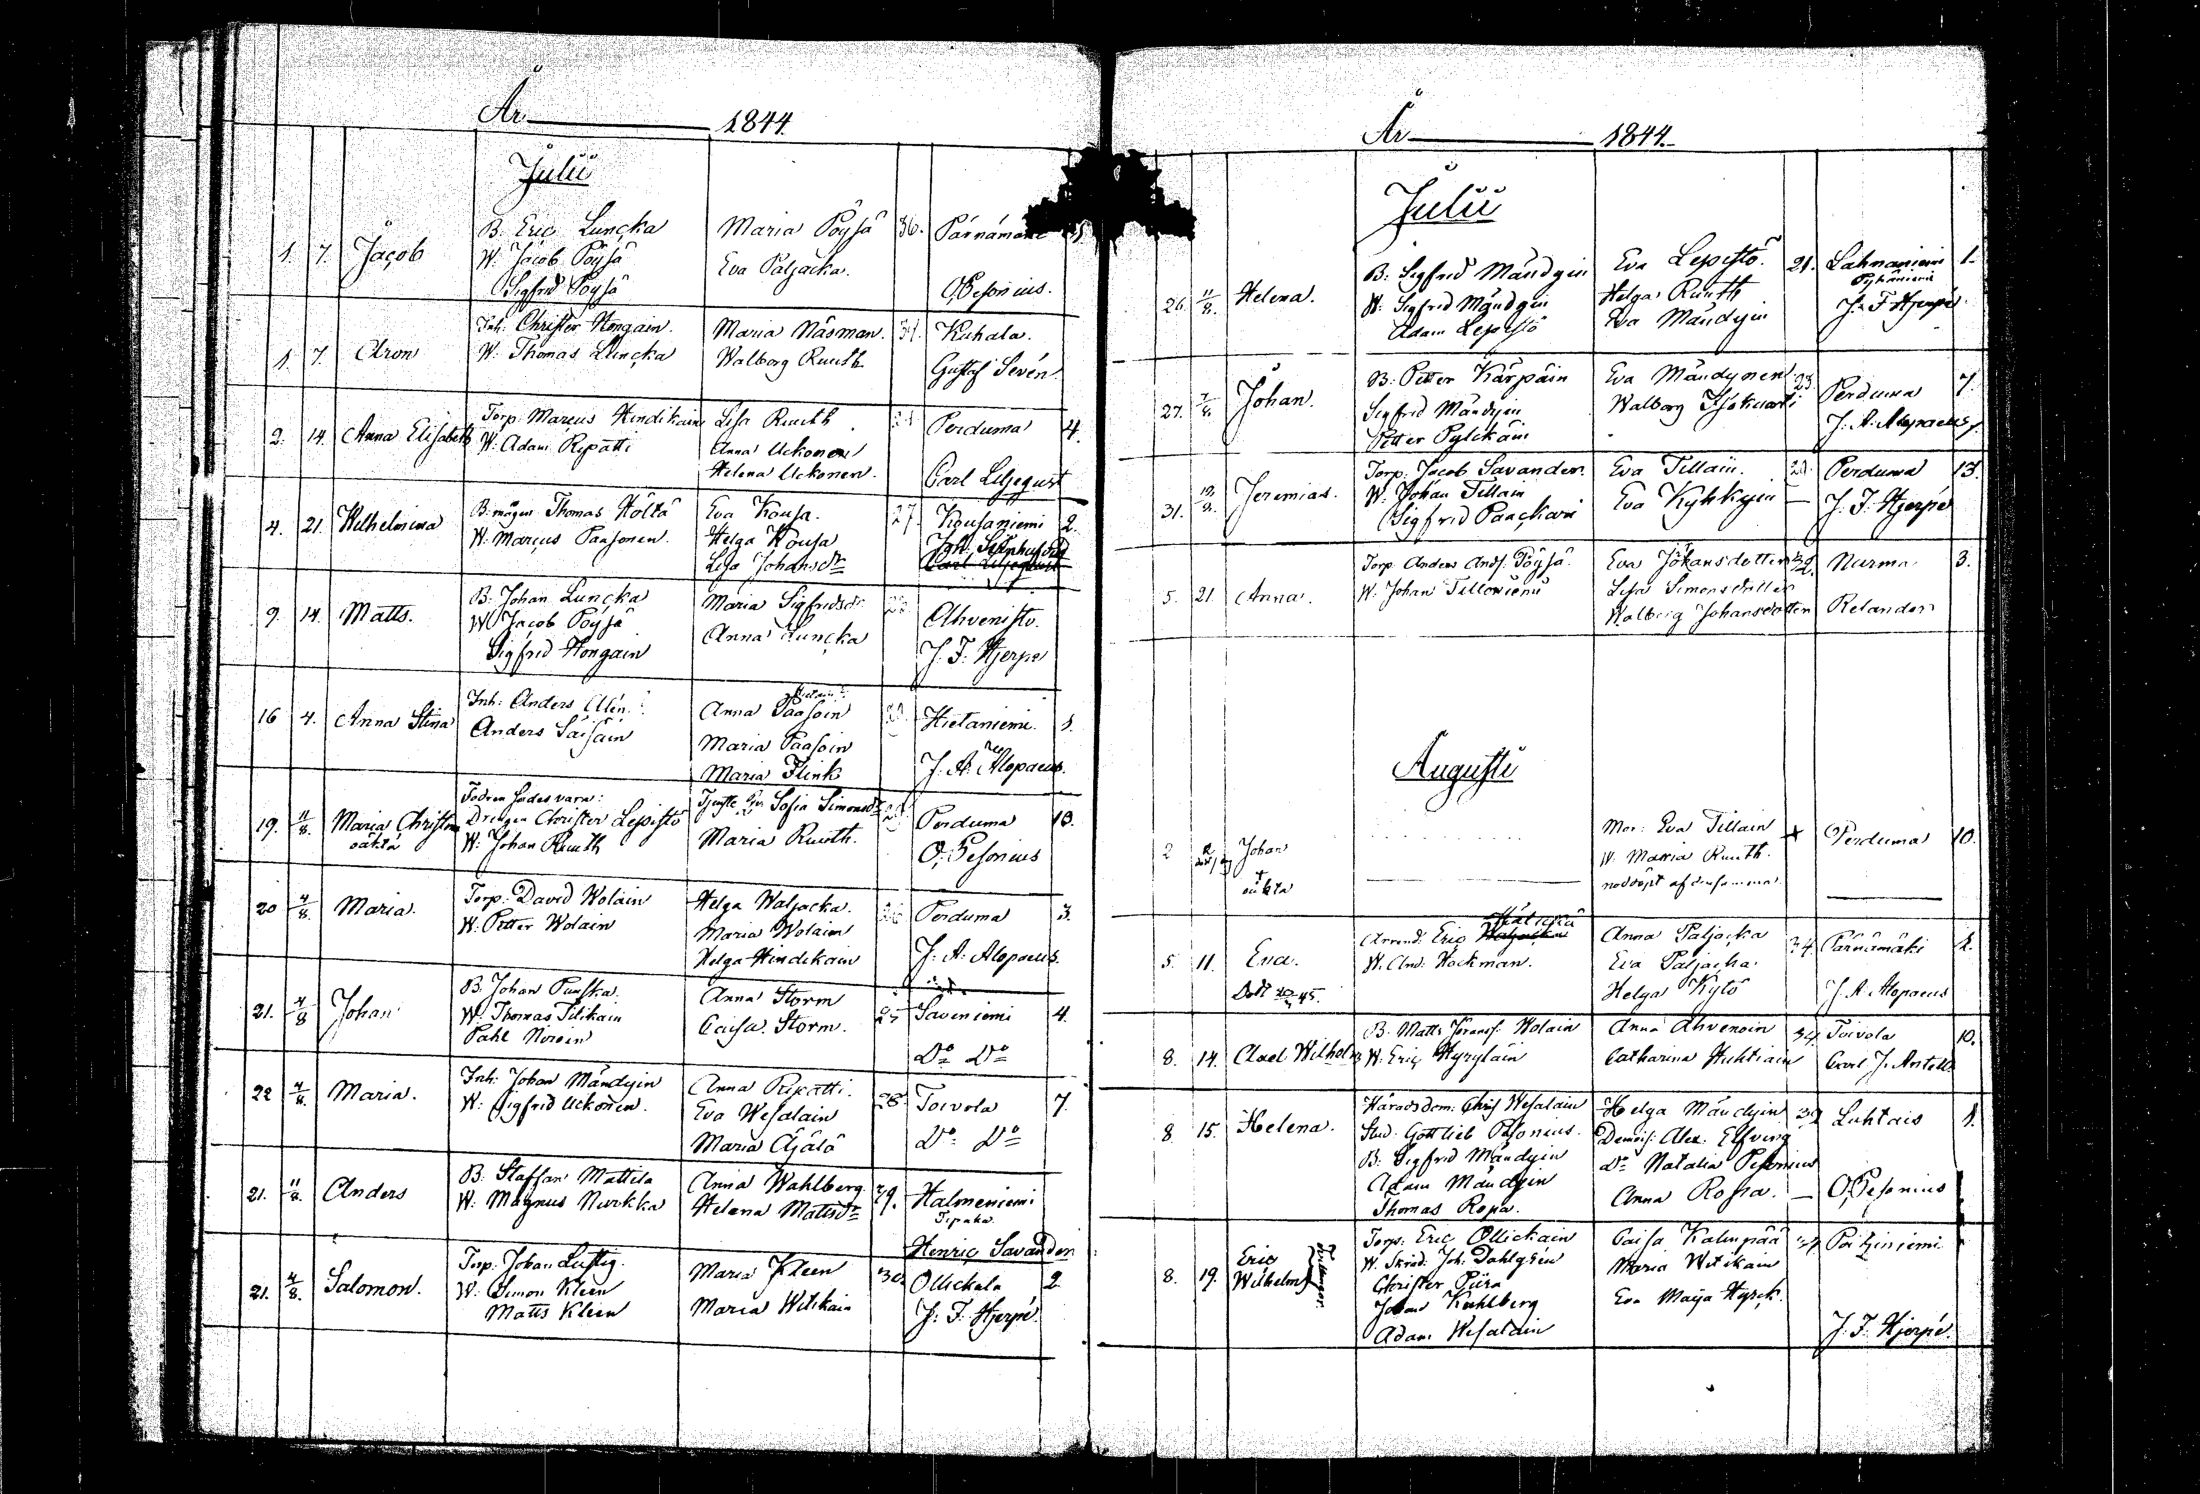 År 1844
Julii
1. 7. Jacob B: Eric Luncka Maria Pöysä 36. Pärnämäki
W. Jacob Pöysä Eva Paljacka.
Sigfrid Pöysä O. Pesonius.
1. 7. Aron Inh: Christer Hongain. Maria Näsman. 34. Kuhala.
W. Thomas Luncka Walborg Ruuth Gustaf Sevén
2. 14. Anna Elisabeth Torp: Marcus Hindikain Lisa Ruuth Perduma 4.
W. Adam Ripatti Anna Uckonen
Helena Uckonen. Carl Liljequst
4. 21. Wilhelmina B. mågen Thomas Höltä Eva Kousa. 27. Kousaniemi 2.
W. Marcus Paasonen. Helga Kousa Joh:
Lisa Johansdr Carl Liljequst
9. 14. Matts. B. Johan Luncka Maria Sigfridsdr Ahvenisto.
W Jacob Pöysä Anna Luncka
Sigfrid Hongain J. F. Hjerpe
16 4. Anna Stina Inh: Anders Alén Anna Paasoin Hietaniemi 1.
Anders Säisäin Maria Paasoin
Maria Flink J. A. Alopaeus.
19. 11/8. Maria Christina Fadren sades vara: Tjenste Piv: Sofia Simonsdr Perduma 13.
oäkta Drängen Christer Lepistö
W. Johan Ruuth Maria Ruuth. O. Pesonius
20 4/8. Maria. Torp: David Wolain Helga Waljacka. 26 Perduma 3.
W. Petter Wolain Maria Wolain
Helga Hindikain J. A. Alopaeus.
21. 4/8 Johan B. Johan Punska. Anna Storm Saveniemi 4.
W. Thomas Tilikain Caisa Storm.
Pahl Do Do
22 4/8. Maria. Inh: Johan Mändyin Anna Ripatti. 28. Toivola 7.
W: Sigfrid Uckonen. Eva Wesalain
Maria Äjälä Do Do
21. 11/8. Anders B. Staffan Mattila Anna Wahlberg 39. Halmeniemi
W. Magnus Nurkka Helena Mattsdr
Henric Savander
21. 4/8. Salomon. Torp. Johan Lustig. Maria Kleen 30. Ollickala 2.
W. Simon Kleen Maria Witikain
Matts Kleen J: F. Hjerpé.
År 1844.
Julii
26. 11/8. Helena. B: Sigfrid Mändyin Eva Lepistö. 21. Lahnaniemi 1.
W. Sigfrid Mändyin Helga Ruuth Pyhäniemi
Adam Lepistö Eva Mändyin J. F Hjerpé
27. 7/8. Johan. B. Petter Kärpäin Eva Mändynen 23 Perduma 7.
Sigfrid Mändyin Walborg
Petter Pylckäin J. A. Alopaeus.
31. Jeremias. Torp: Jacob Savander. Eva Tillain. Perduma 13.
W. Johan Tillain Eva Kyhkyin
Sigfrid Paackari J. F. Hjerpé
5. 21. Anna. Torp Anders Ands. Pöysä. Eva Johansdotter 32. Nurma 3.
W. Johan Lisa Simonsdotter
Walborg Johansdotter Relander
Augusti
2 Johan Mor: Eva Tillain Perduma 10.
oäkta W. Maria Ruuth.
nöddöpt af densamma.
5. 11. Eva. Arrend: Eric Anna Paljacka 34. Pärnämäki 2.
W. And: Hackman. Eva Paljacka.
Död 45. Helga Kytö J. A Alopaeus
8. 14. Axel Wilhelm B. Matts Wolain Anna Ahvenoin 34. Toivola 10.
W. Eric Hyryläin Catharina Huhtiain Carl J. Antell.
8 15. Helena. Häradsdom: Chris Wesalain Helga Mändyin Luhtais 1.
Stud: Gottlieb Pesonius. Demois: Alex: Elfving
B: Sigfrid Mändyin Do Natalia Pesonius
Adam Mändyin Anna Ropa. O. Pesonius
Thomas Ropa.
8. 19. Eric Wilhelm } Tvillingar. Torp: Eric Ollickain Caisa Kalmpää
W. Skräd: Joh: Dahlgrén Maria Witikain
Christer Piira Eva Maija
Johan Kahlberg
Adam Wesalain J. F. Hjerpé.